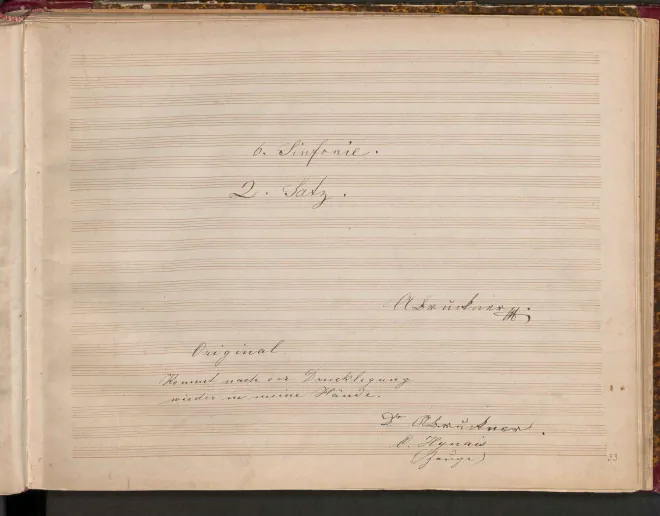 6. Sinfonie.
2. Satz.
ABruckner
Original
Kommt nach der Drucklegung
wieder in meine Hände.
Dr ABruckner.
C. Hynais
(Zeuge)
33